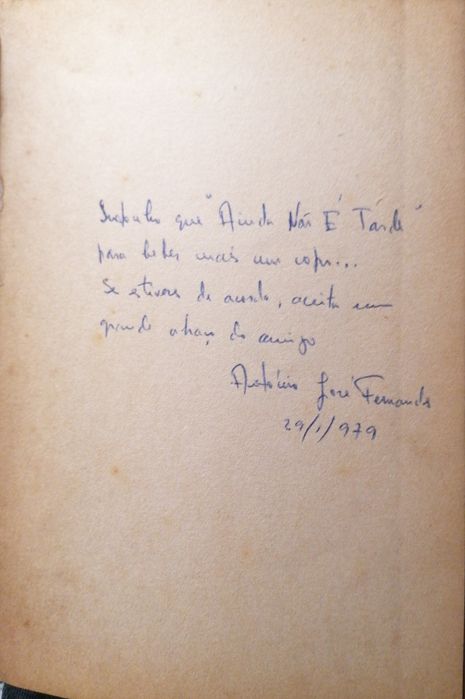 Suponho que "Ainda Não É Tarde"
para beber mais um copo...
Se estiveres de acordo, aceita um
grande abraço do amigo
António José Fernandes
29/1/979